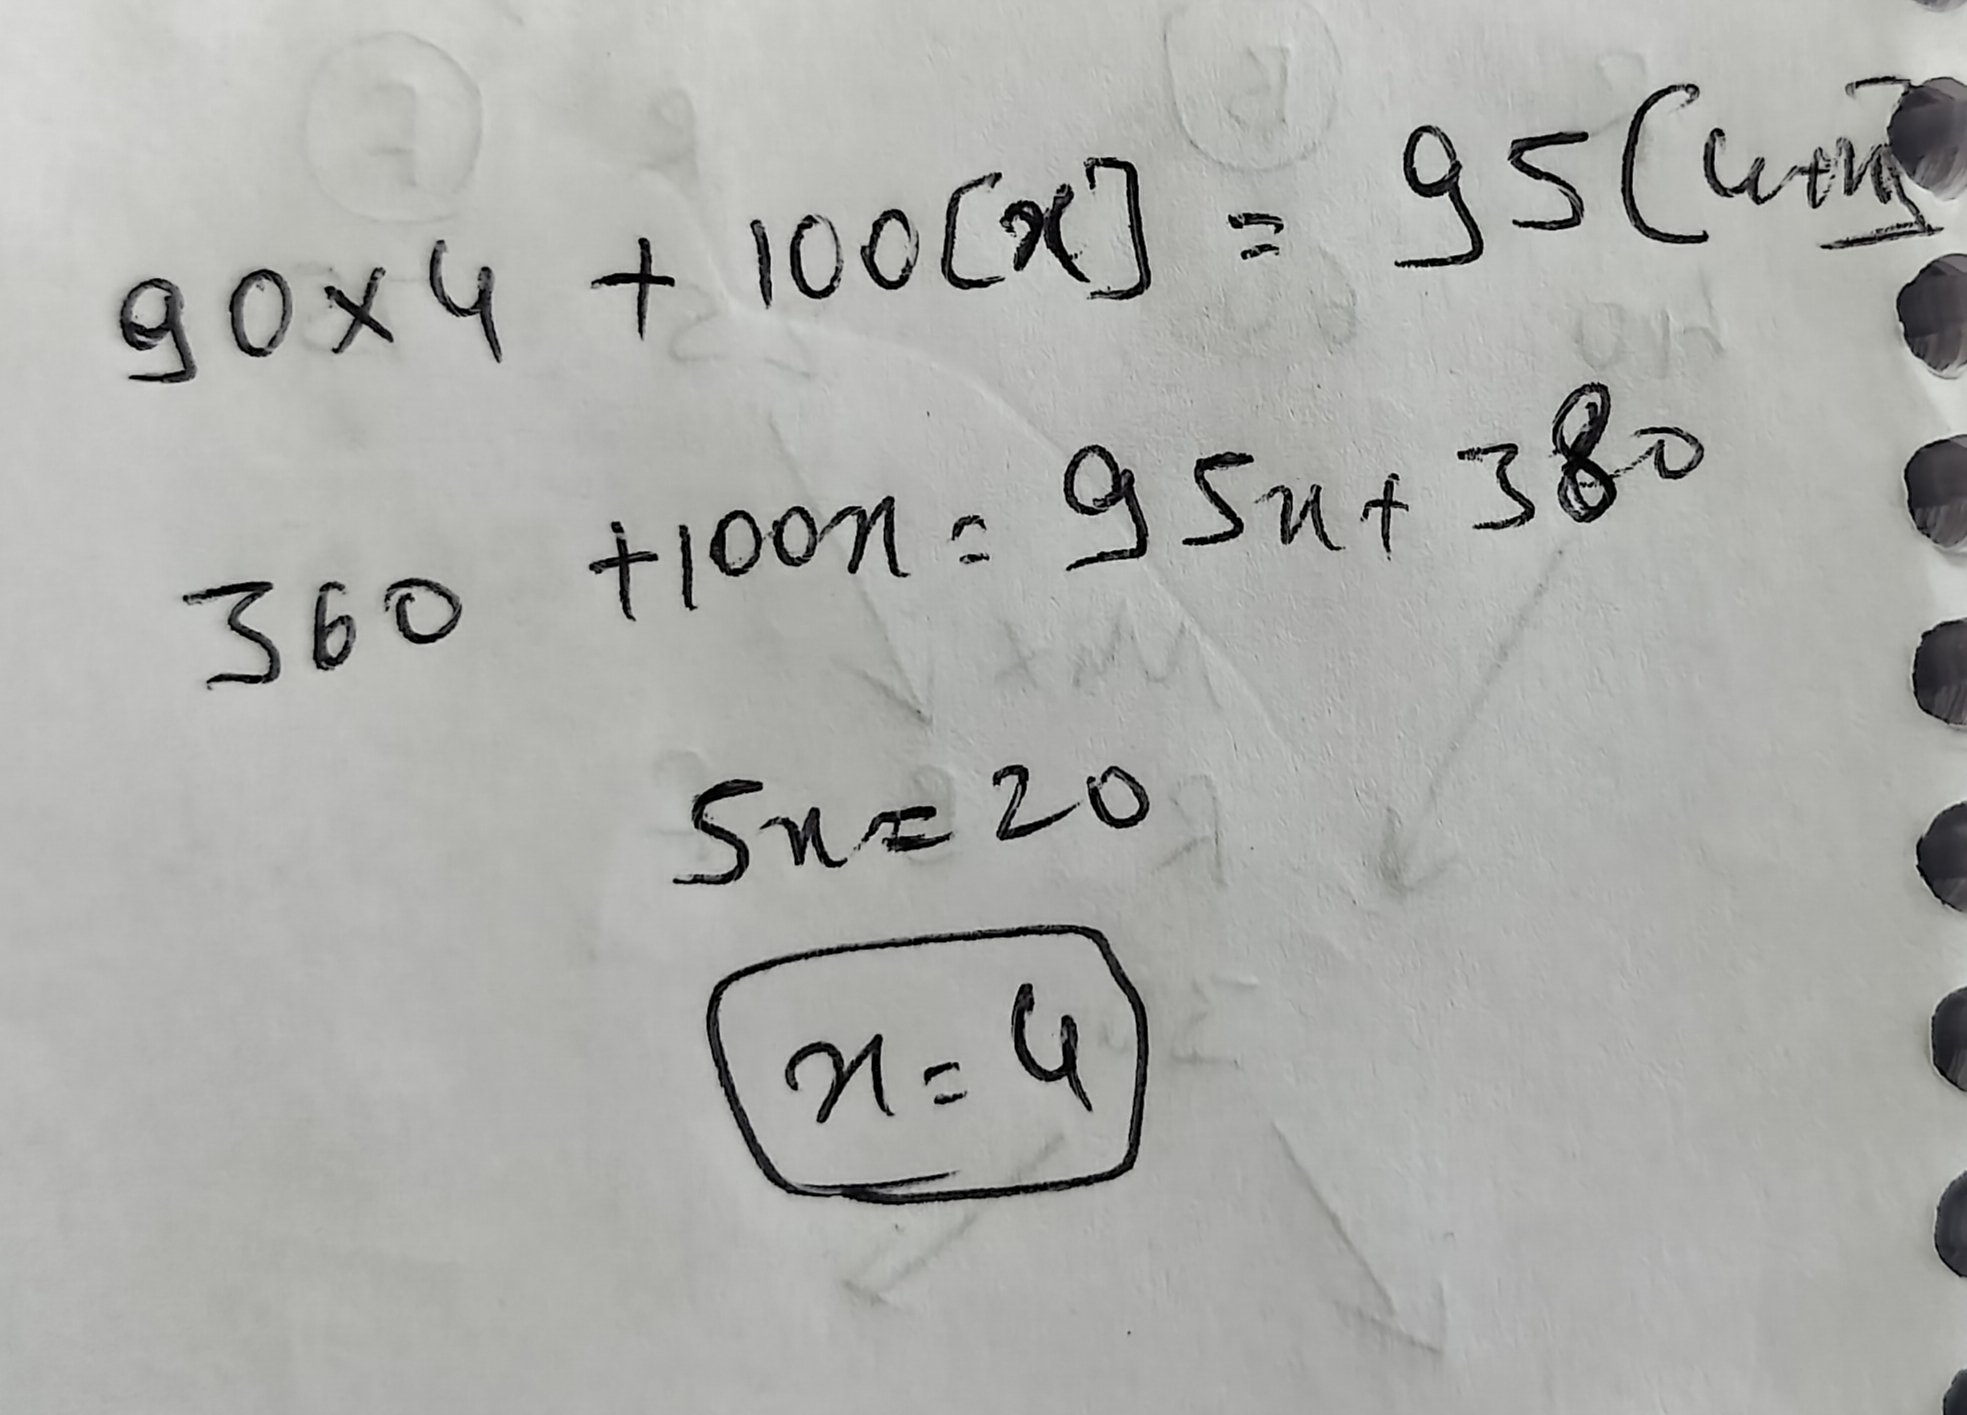 90x4 + 100[x] = 95[4+x]
360 +100x = 95x + 380
5x = 20
x = 4